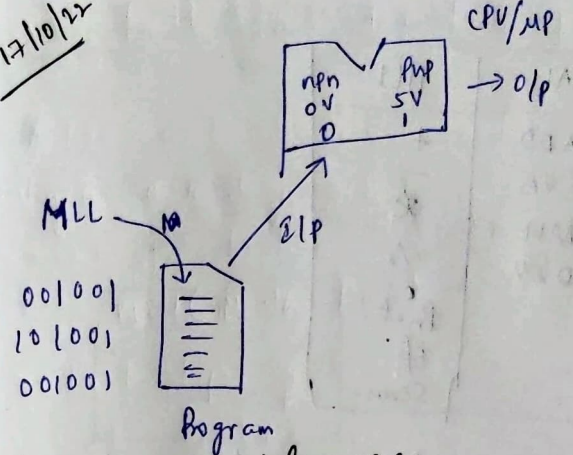 17/10/22
CPU/MP
npn pnp
0V 5V
0 1
→ O/P
MLL
I/P
001001
101001
001001
Program